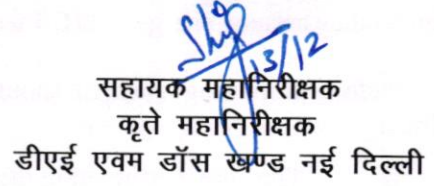 13/12
सहायक महानिरीक्षक
कृते महानिरीक्षक
डीएई एवम डॉस खण्ड नई दिल्ली